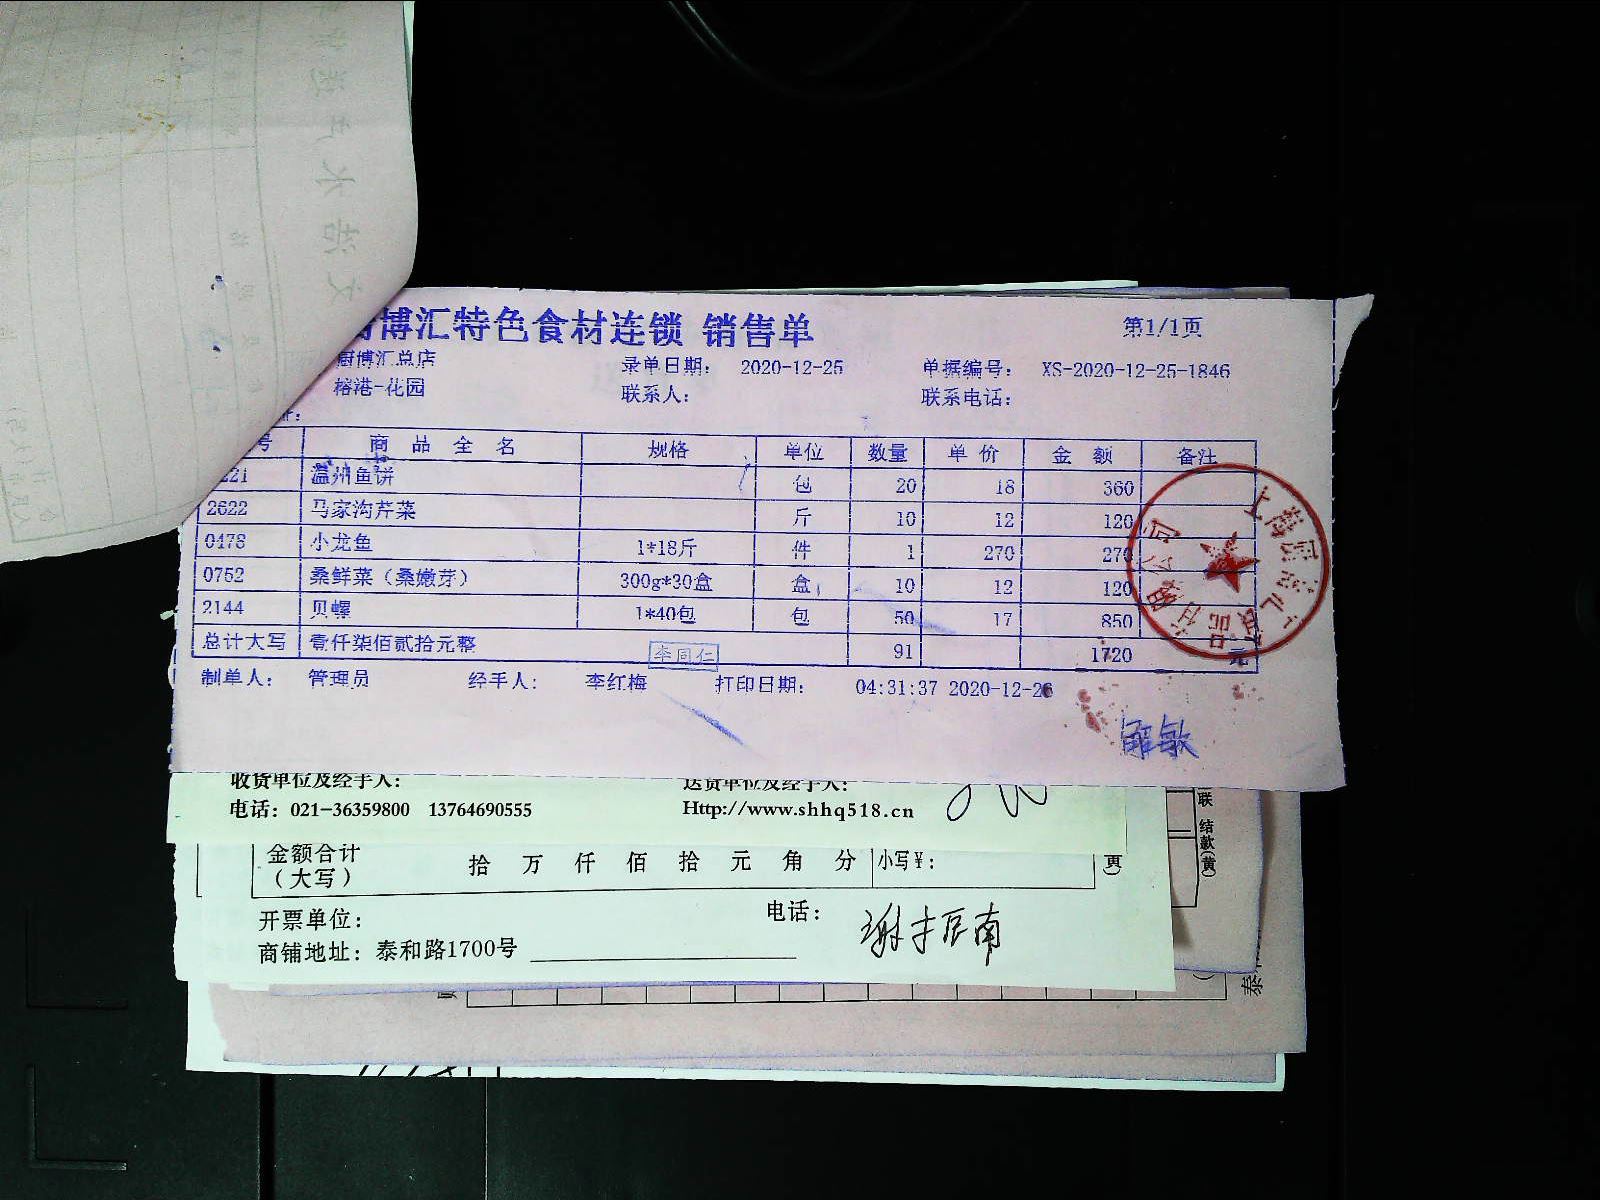 博汇特色食材连锁 销售单
第1/1页
厨博汇总店 录单日期： 2020-12-25 单据编号： XS-2020-12-25-1846
榕港-花园 联系人： 联系电话：
号 商 品 全 名 规格 单位 数量 单 价 金 额 备注
221 温州鱼饼 包 20 18 360
2622 马家沟芹菜 斤 10 12 120
0478 小龙鱼 1*18斤 件 1 270 270
0752 桑鲜菜（桑嫩芽） 300g*30盒 盒 10 12 120
2144 贝螺 1*40包 包 50 17 850
总计大写 壹仟柒佰贰拾元整 91 1720 元
李同仁
制单人： 管理员 经手人： 李红梅 打印日期： 04:31:37 2020-12-26
解敏
收货单位及经手人： 送货单位及经手人：
电话：021-36359800 13764690555 Http://www.shhq518.cn
金额合计（大写） 拾 万 仟 佰 拾 元 角 分 小写¥：
开票单位： 电话：
商铺地址：泰和路1700号
联 结款(黄)